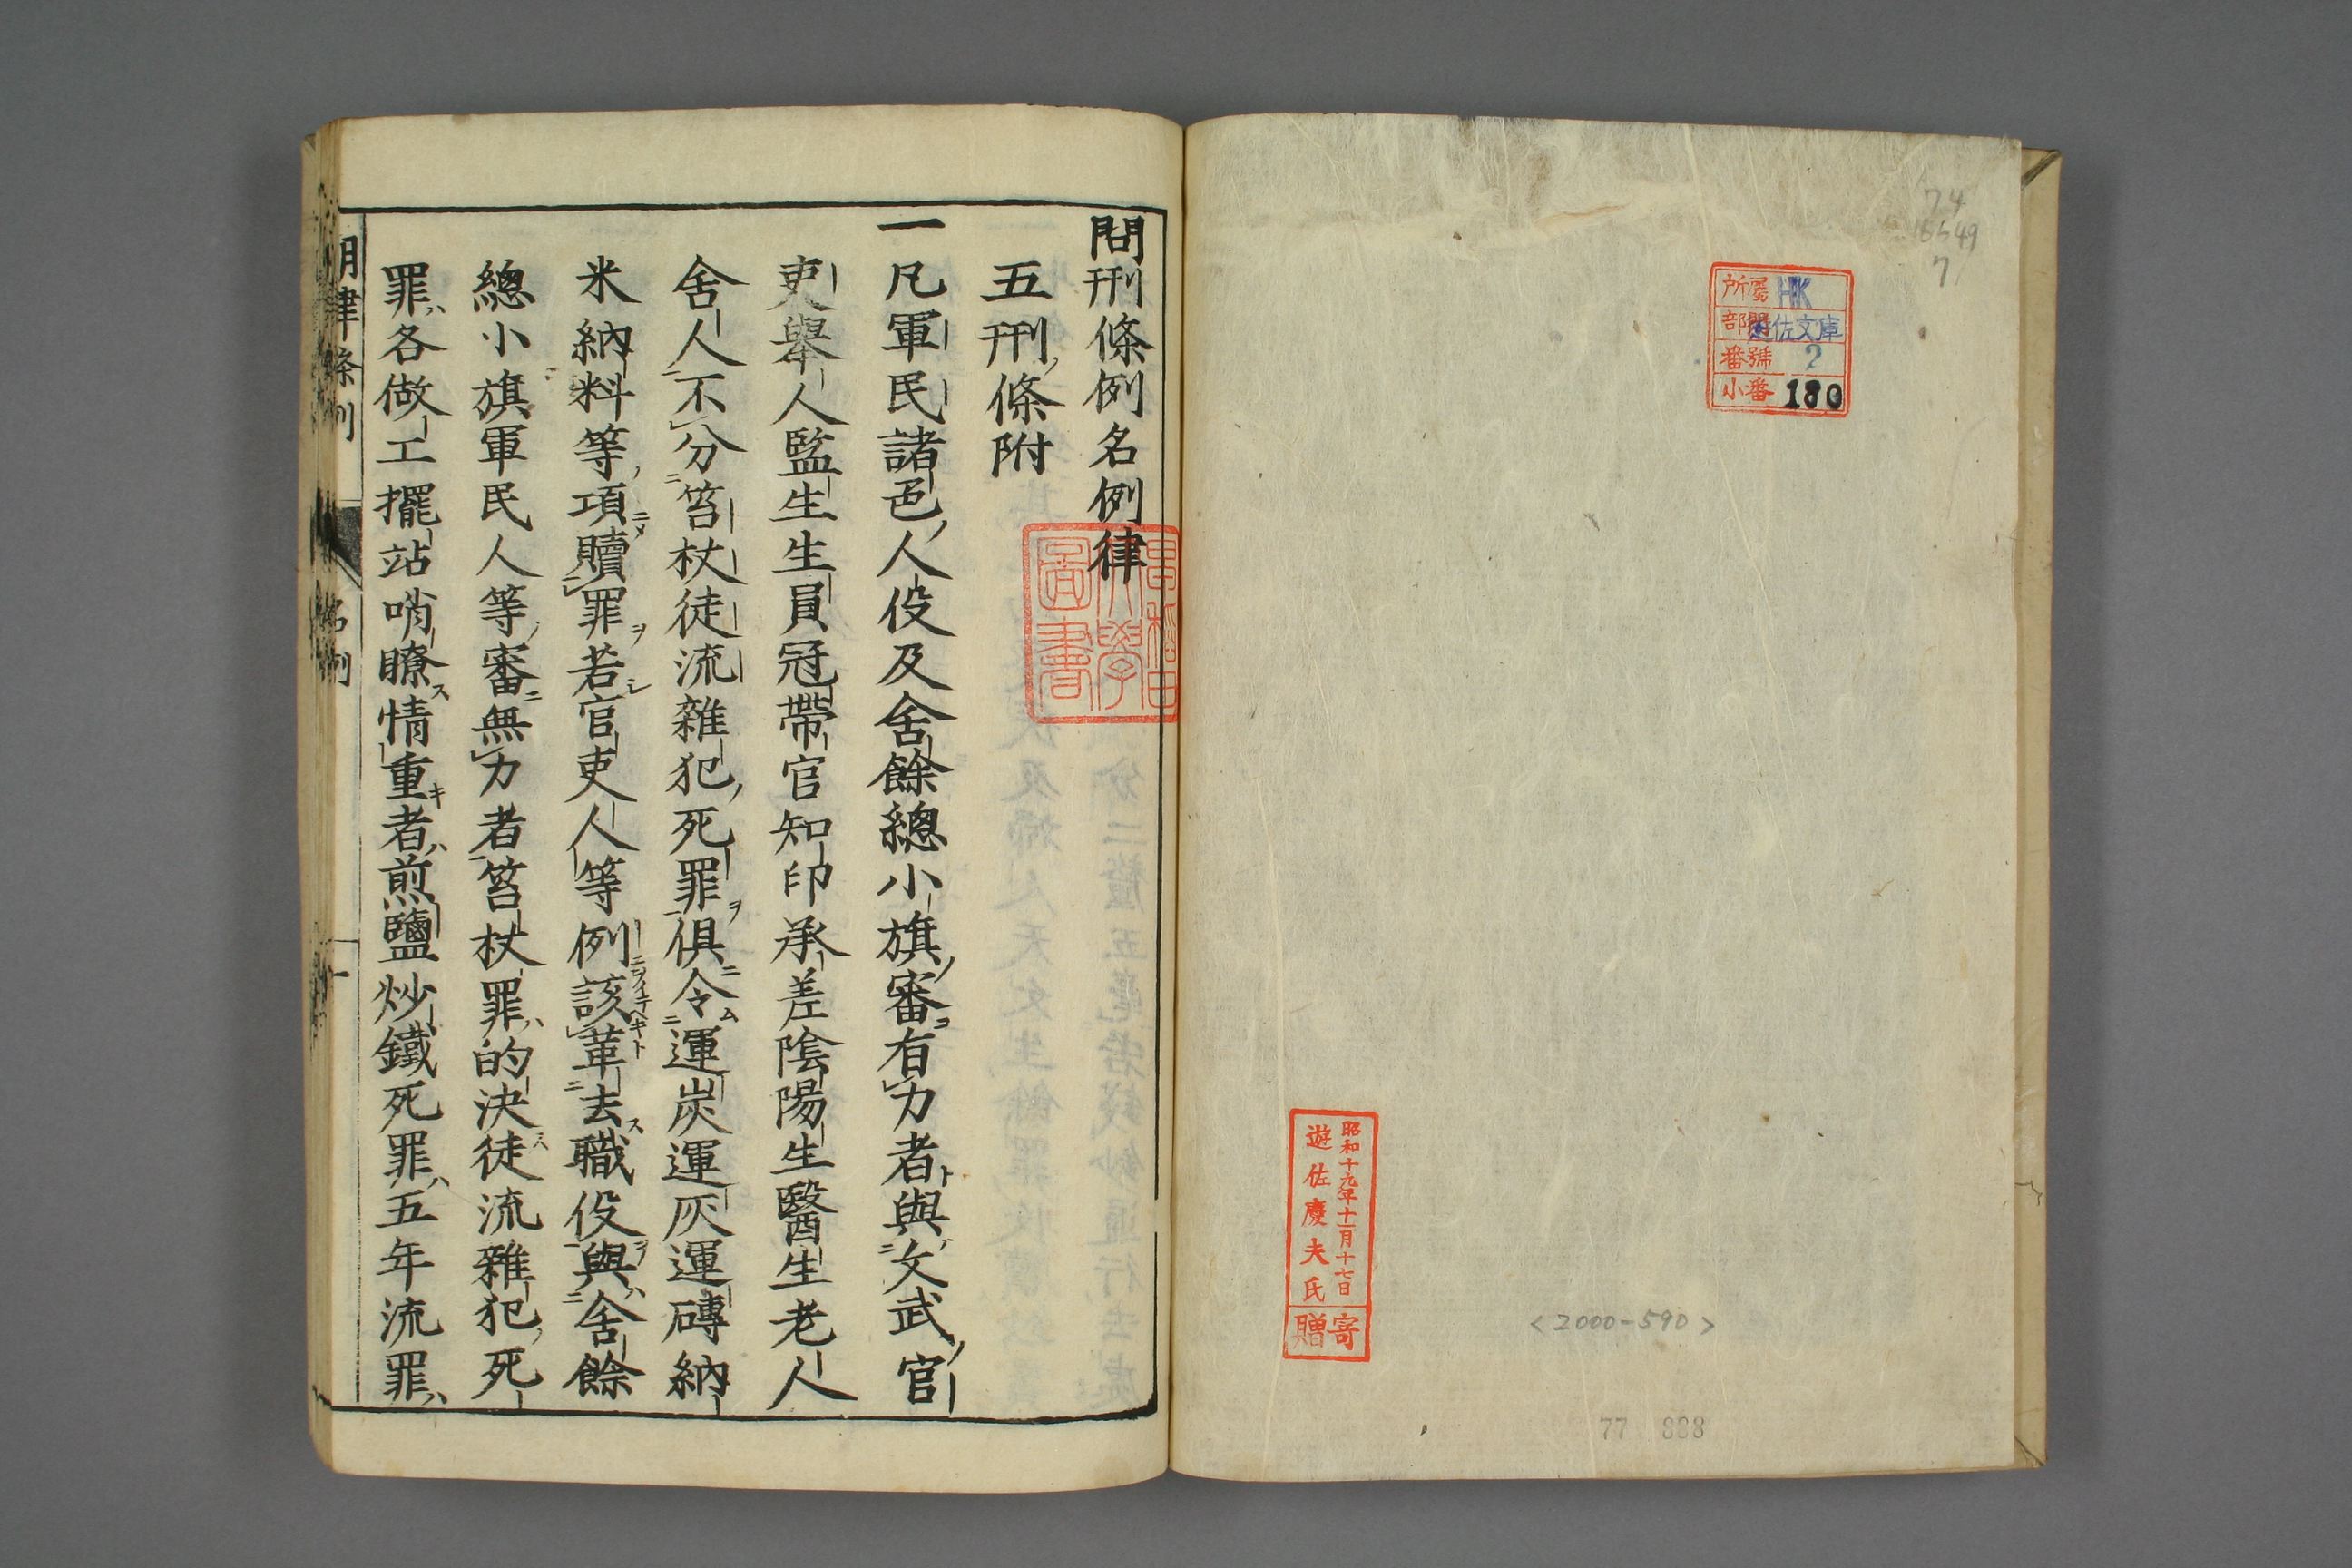 74
6549
7
所屬 HK
部門 遊佐文庫
番號 2
小番 180
昭和十九年十一月十七日
遊佐慶夫氏
寄贈
<2000-590>
77 888
早稲田
大學
圖書
問刑條例名例律
五刑ノ條附
一凡軍民諸色ノ人役及舍餘總小旗ノ審ヲ有力者ト與文武ノ官
吏舉人監生生員冠帶官知印承差陰陽生醫生老人
舍人不分笞杖徒流雜犯ノ死罪ヲ俱ニ令ム運炭運灰運磚納
米納料等ノ項ニメ贖罪ヲ若シ官吏人等例該革去ス職役ヲ與ハ舍餘
總小旗軍民人等ノ審ニ無力者笞杖罪ハ的決ス徒流雜犯ノ死
罪ハ各做工擺站哨瞭ス情重キ者ハ煎鹽炒鐵死罪ハ五年流罪ハ
明律條例 名例 一